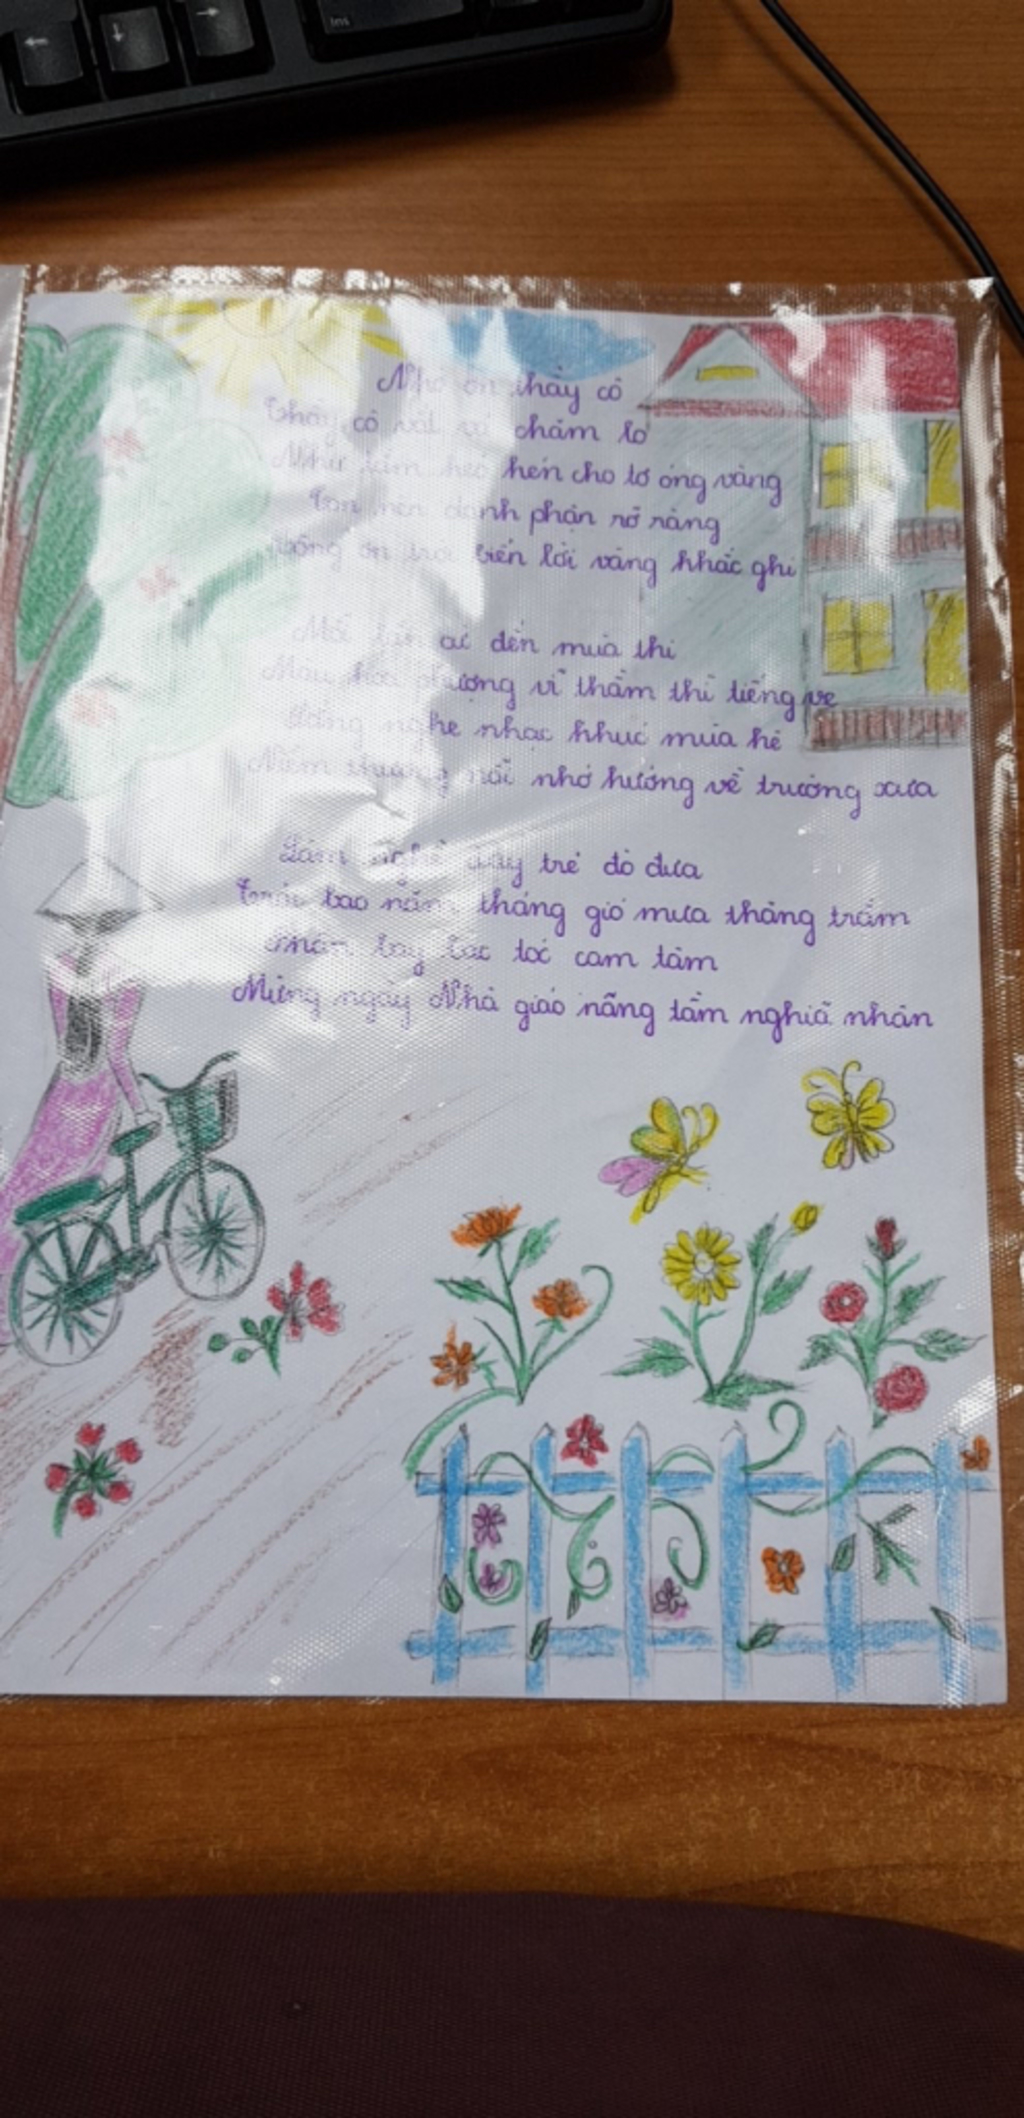 Nhớ ơn thầy cô
Thầy cô vất vả chăm lo
Như tằm héo hén cho tơ óng vàng
danh phận rõ ràng
ơn trời biển lời vàng khắc ghi
đến mùa thi
Màu hoa phượng vĩ thầm thì tiếng ve
nghe nhạc khúc mùa hè
Niềm thương nỗi nhớ hướng về trường xưa
Lắm nghề dạy trẻ đò đưa
bao năm tháng gió mưa thăng trầm
tay bạc tóc cam tâm
Mừng ngày Nhà giáo nâng tầm nghĩa nhân
Ins